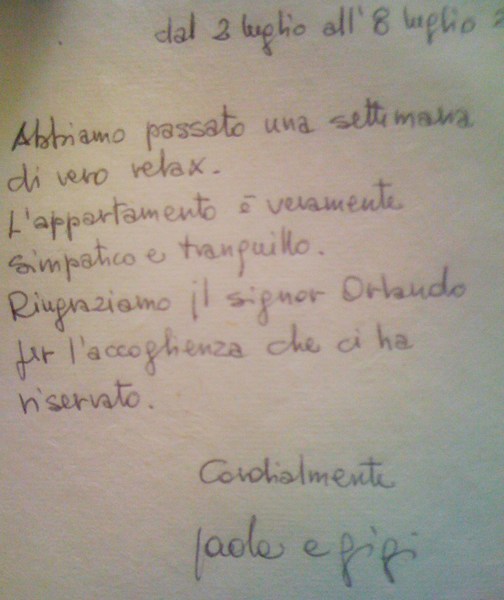 dal 2 luglio all'8 luglio
Abbiamo passato una settimana
di vero relax.
L'appartamento è veramente
simpatico e tranquillo.
Ringraziamo il signor Orlando
per l'accoglienza che ci ha
riservato.
Cordialmente
Paola e gigi